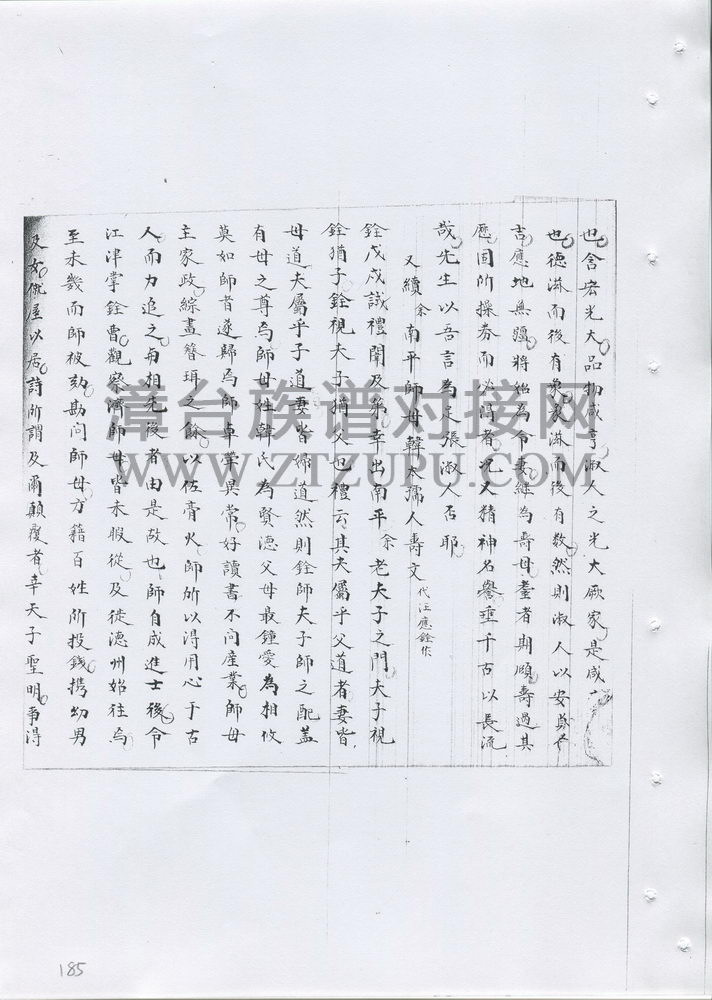 也含宏光大品物咸亨淑人之光大厥家是咸
也德淋而後有衆衣淋而後有数然則淑人以安貞
吉應地無疆將始為令妻繼為壽母耋者期頤壽過其
歷固所操券而必得者况大精神名譽垂千古以長流
哉先生以吾言為足張淑人否耶
又續余南平師母韓太孺人壽文代汪應銓作
銓戊戌試禮闈及第幸出南平余老夫子之門夫子視
銓猶子銓視夫子猶父也禮云其夫屬乎父道者妻皆
母道夫屬乎子道妻皆婦道然則銓師夫子師之配蓋
有母之尊焉師母姓韓氏為賢德父母最鍾愛為相攸
莫如師者遂歸焉師卓犖異常好讀書不問産業師母
主家政綜畫簪珥之餘以佐膏火師所以得用心于古
人而力追之相先後者由是故也師自成進士後令
江津掌銓曹觀察濟師母皆未暇從及徒德州始往焉
至未幾而師被劾勘問師母方籍百姓所投錢携幼男
及女僦屋以居詩所謂及爾顛覆者幸天子聖明事得
漳台族谱对接网
WWW.ZTZUPU.COM
185